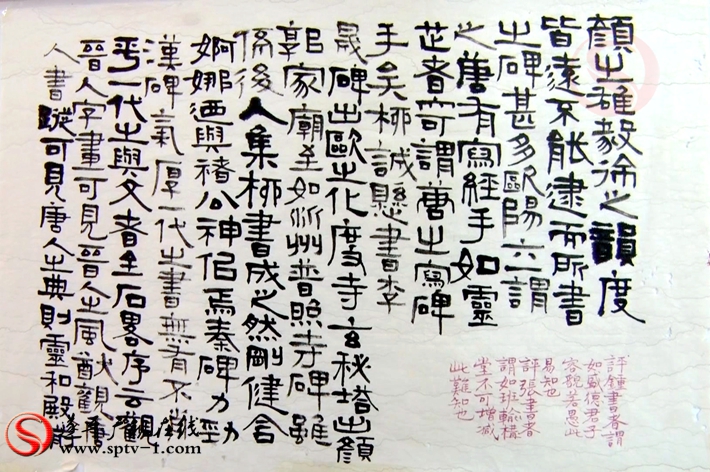 顏之雄毅徐之韻度
皆遠不能逮而所書
之碑甚多歐陽六謂
之唐有寫經手如靈
芝者可謂唐之寫碑
手矣柳誠懸書李
晟碑出歐之化度寺玄秘塔出顏
郭家廟至如沂州普照寺碑雖
係後人集柳書成之然剛健含
婀娜迺與褚公神侣焉秦碑力勁
漢碑氣厚一代之書無有不
乎一代之與文者金石畧序云觀
晉人字畫可見晉人之風猷觀唐
人書蹤可見唐人之典則靈和殿
評鍾書者謂
如盛德君子
容貌若愚此
易知也
評張書者
謂如班輸構
堂不可增減
此難知也
在线
www.sptv-1.com